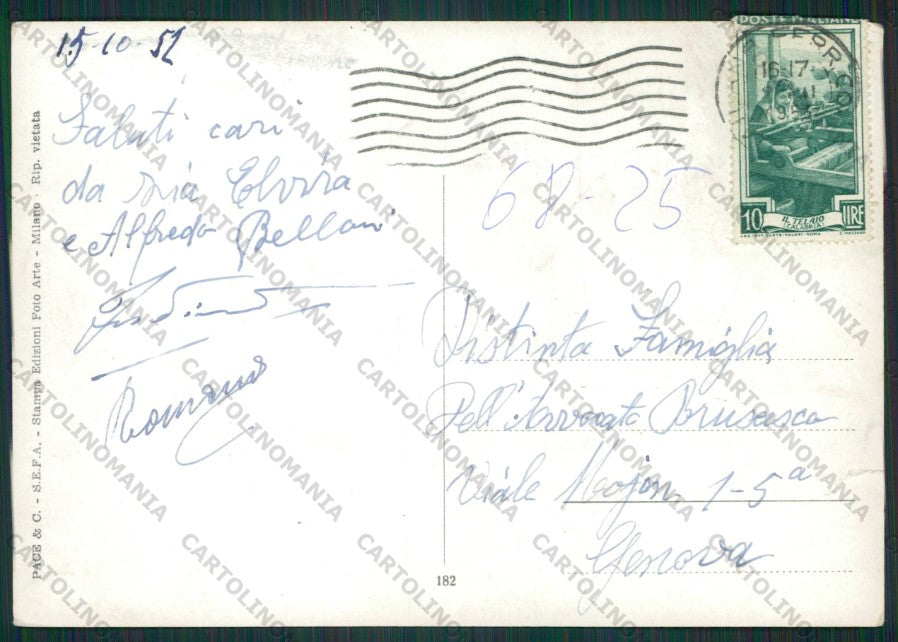 15-10-52
Saluti cari
da Elvira
e Alfredo Bellani
Romano
PACE & C. - S.E.F.A. - Stampa Edizioni Foto Arte - Milano - Rip. vietata
POSTE ITALIANE
16-17
10 IL TELAIO LIRE
(CALABRIA)
68-25
Distinta Famiglia
Dell'Avvocato
Viale Mojon 1-5ª
Genova
182
CARTOLINOMANIA